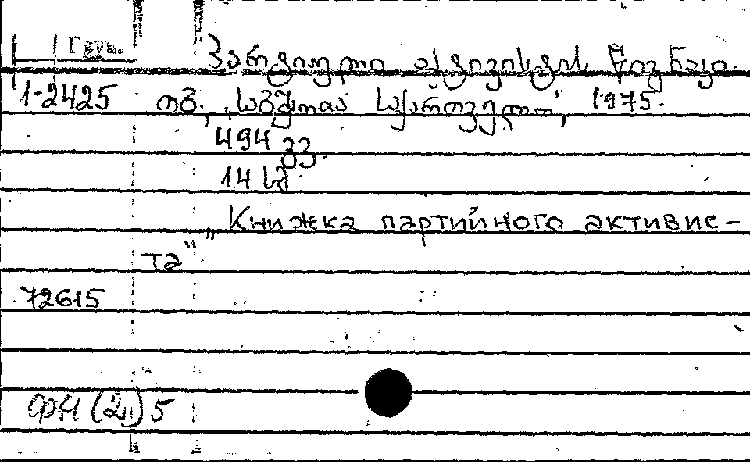 Груз.
პარტიული აქტივისტის წიგნაკი.
1-2425 თბ., „საბჭოთა საქართველო", 1975.
494 გვ.
14 სმ
„Книжка партийного активис-
та"
72615